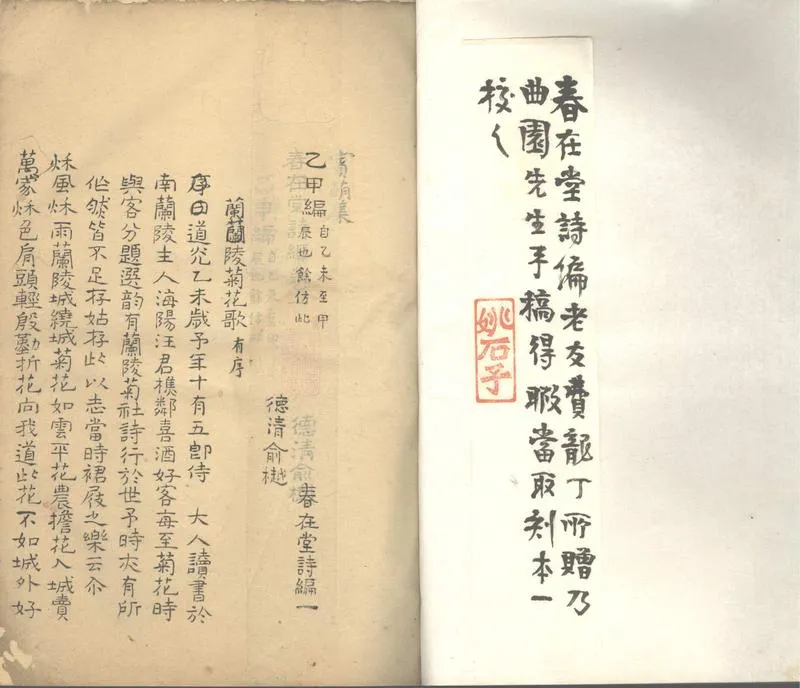 春在堂詩編老友費龍丁所贈乃
曲園先生手稿得暇當取刻本一
校之
姚石子
春在堂詩編一
德清俞樾
乙甲編自乙未至甲
辰也餘仿此
蘭陵菊花歌有序
序曰道光乙未歲予年十有五卽侍 大人讀書於
南蘭陵主人海陽汪君樵鄰喜酒好客每至菊花時
與客分題選韵有蘭陵菊社詩行於世予時亦有所
作然皆不足存姑存此以志當時裙屐之樂云尒
秌風秌雨蘭陵城繞城菊花如雲平花農擔花入城賣
萬家秌色肩頭輕殷勤折花向我道此花不如城外好